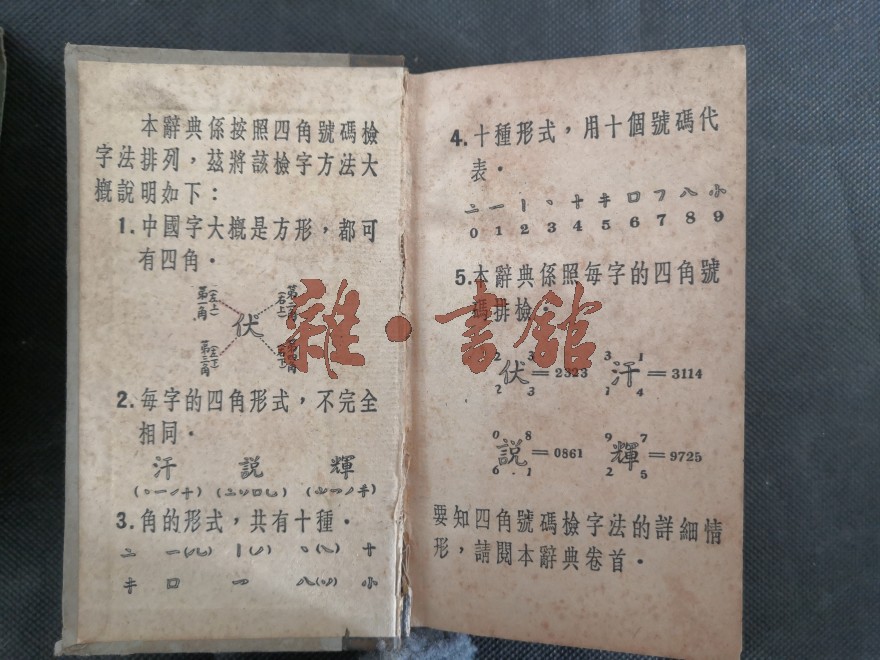 本辭典係按照四角號碼檢
字法排列，茲將該檢字方法大
概說明如下：
1.中國字大概是方形，都可
有四角。
第一角(左上) 第二角(右上)
伏
第三角(左下) 第四角(右下)
2.每字的四角形式，不完全
相同。
汗 説 輝
3.角的形式，共有十種。
4.十種形式，用十個號碼代
表。
亠 一 丨 丶 十 キ 口 ㇇ 八 小
0 1 2 3 4 5 6 7 8 9
5.本辭典係照每字的四角號
碼排檢。
2 3 3 1
伏=2323 汗=3114
2 3 1 4
0 8 9 7
説=0861 輝=9725
6 1 2 5
要知四角號碼檢字法的詳細情
形，請閱本辭典卷首。
雜·書館